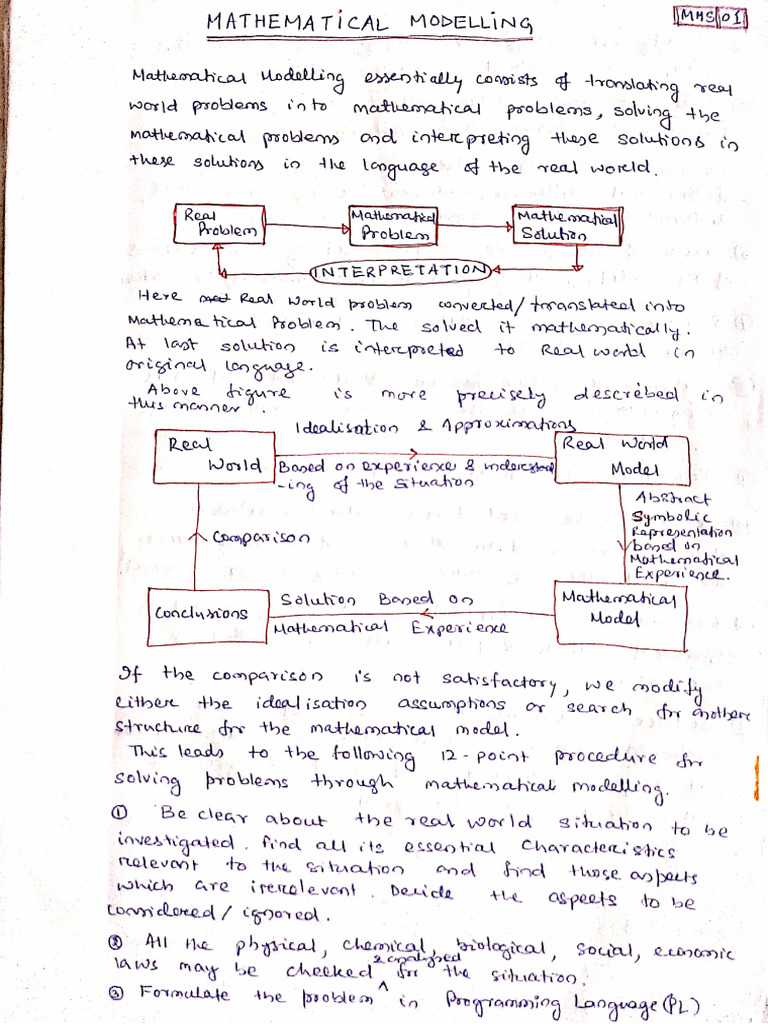 MATHEMATICAL MODELLING
MMS 01
Mathematical Modelling essentially consists of translating real
world problems into mathematical problems, solving the
mathematical problems and interpreting these solutions in
these solutions in the language of the real world.
Real
Problem
Mathematical
Problem
Mathematical
Solution
INTERPRETATION
Here Real World problem converted/translated into
Mathematical Problem. The solved it mathematically.
At last solution is interpreted to Real world in
original language.
Above figure is more precisely described in
this manner.
Idealisation & Approximations
Real
World
Based on experience & understand
-ing of the situation
Real World
Model
Abstract
Symbolic
Representation
based on
Mathematical
Experience.
Comparison
Conclusions
Solution Based on
Mathematical Experience
Mathematical
Model
If the comparison is not satisfactory, we modify
either the idealisation assumptions or search for another
structure for the mathematical model.
This leads to the following 12-point procedure for
solving problems through mathematical modelling.
① Be clear about the real world situation to be
investigated. Find all its essential characteristics
relevant to the situation and find those aspects
which are irrelevant. Decide the aspects to be
considered/ignored.
② All the physical, chemical, biological, social, economic
laws may be checked for the situation.
& analyzed
③ Formulate the problem ^ in Programming Language (PL)